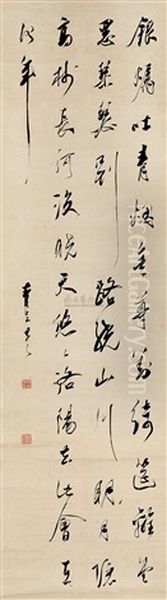 銀燭吐青烟金尊對綺筵離堂
思琴瑟別路繞山川明月隱
高樹長河沒曉天悠々洛陽去此會在
何年